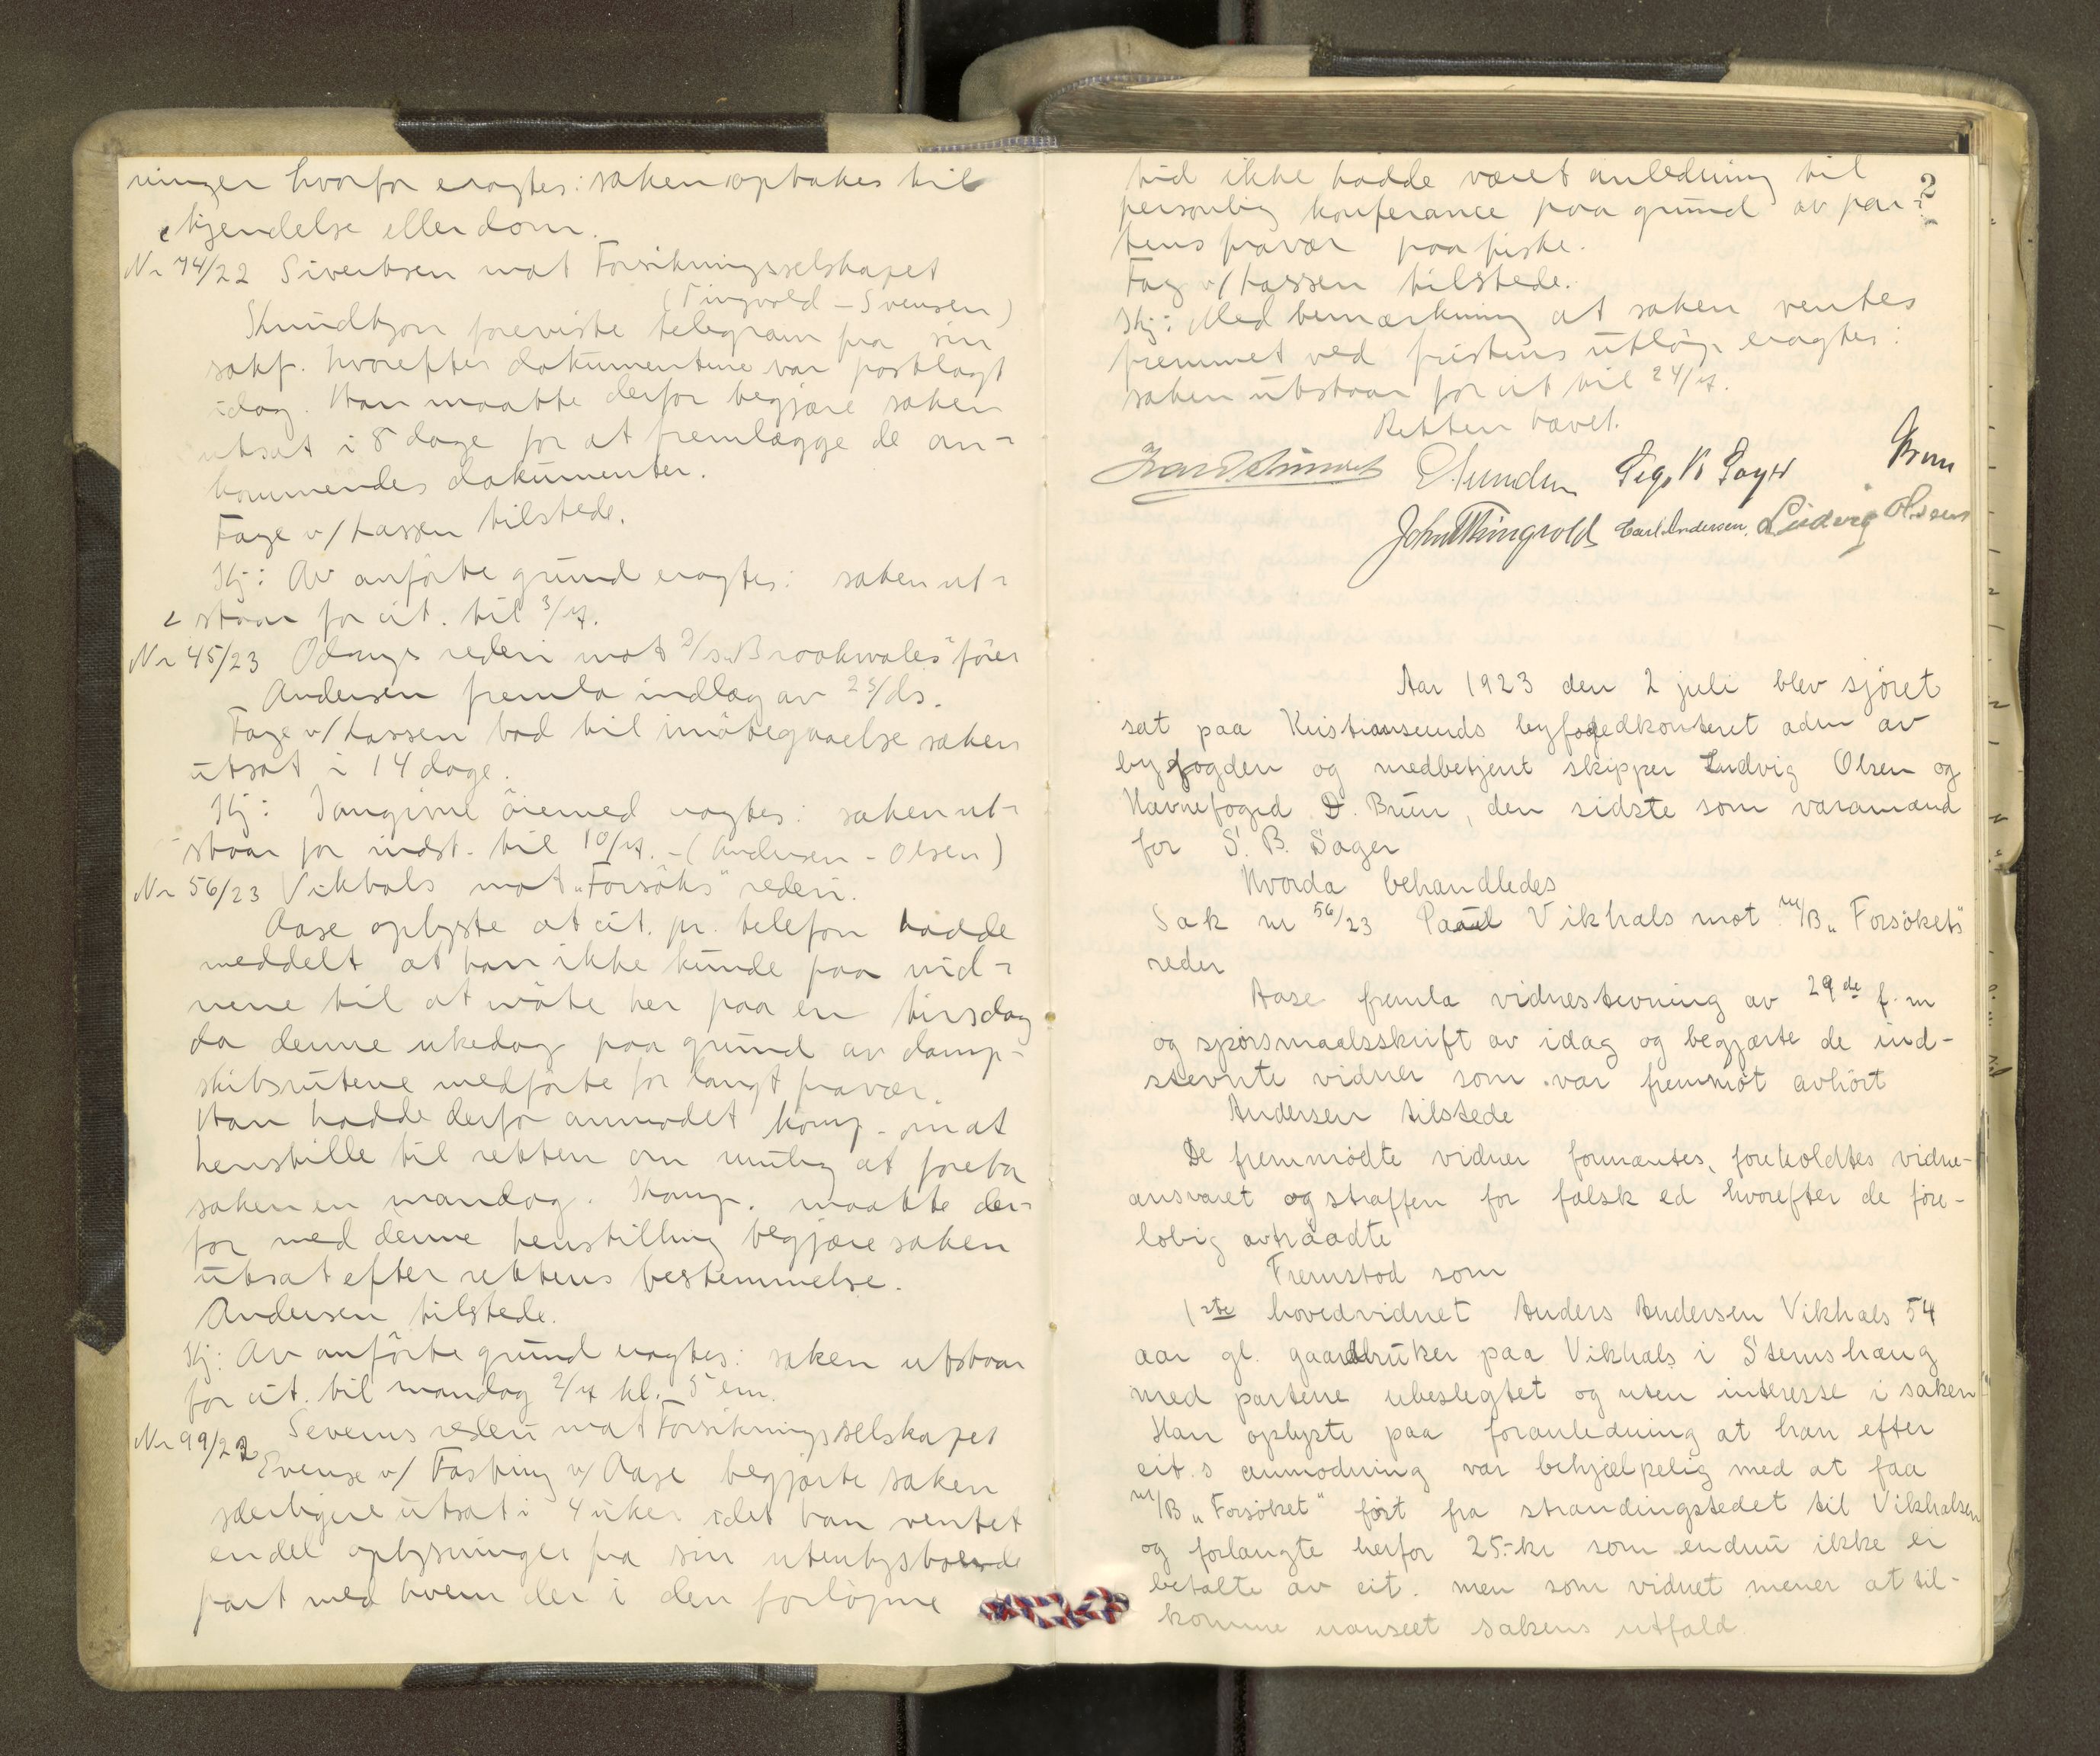 ninger hvorfor eragtes: saken optakes til
kjendelse eller dom.
Nr 74/22 Sivertsen mot Forsikringsselskapet
(Tingvold - Svensen)
Knudtzon foreviste telegram fra sin
sakf. hvorefter dokumentene var postlagt
idag. Han maatte derfor begjære saken
utsat i 8 dage for at fremlægge de an-
kommendes dokumenter.
Faye v/ Lassen tilstede.
Kj: Av anførte grund eragtes: saken ut-
staar for cit. til 3/7.
Nr 45/23 Odanys rederi mot D/S "Brookwales" fører
Andersen fremla indlæg av 25/ds.
Faye v/ Lassen bad til imøtegaaelse saken
utsat i 14 dage.
Kj: I angivne øiemed eragtes: saken ut-
staar for indst. til 10/7. - (Andersen - Olsen)
Nr 56/23 Vikhals mot "Forsøks" rederi.
Aase oplyste at cit. pr. telefon hadde
meddelt at han ikke kunde faa vid-
nene til at møte her paa en tirsdag
da denne ukedag paa grund av damp-
skibsrutene medførte for langt fravær.
Han hadde derfor anmodet komp. om at
henstille til retten om mulig at foreta
saken en mandag. Komp. maatte der-
for med denne henstilling begjære saken
utsat efter rettens bestemmelse.
Andersen tilstede.
Kj: Av anførte grund eragtes: saken utstaar
for cit. til mandag 2/7 kl. 5 em.
Nr 99/22 Severins rederi mot Forsikringsselskapet
Evense v/ Fasting v/ Aase begjærte saken
yderligere utsat i 4 uker idet han ventet
endel oplysninger fra sin utenbysboende
part med hvem der i den forløpne
2
tid ikke hadde været anledning til
personlig konferance paa grund av par-
tens fravær paa fiske.
Faye v/ Lassen tilstede.
Kj: Med bemærkning at saken ventes
fremmet ved fristens utløp eragtes:
saken utstaar for cit til 24/7.
Retten hævet.
Brun
John Thingvold Carl Andersen. Ludvig Olsen
Aar 1923 den 2 juli blev sjøret
sat paa Kristiansunds byfogedkontoret adm av
byfogden og medbetjent skipper Ludvig Olsen og
Havnefoged D. Brun, den sidste som varamand
for S. B. Sager
Hvorda behandledes
Sak nr 56/23 Paul Vikhals mot M/B "Forsøkets"
reder
Aase fremla vidnestevning av 29de f.m
og spørsmaalsskrift av idag og begjærte de ind-
stevnte vidner som var fremmøt avhørt
Andersen tilstede
De fremmødte vidner formantes, foreholdtes vidne-
ansvaret og straffen for falsk ed hvorefter de fore-
løbig avtraadte
Fremstod som
1ste hovedvidnet Anders Andersen Vikhals 54
aar gl. gaardbruker paa Vikhals i Stemshaug
med partene ubeslegtet og uten interesse i saken
Han oplyste paa foranledning at han efter
cit.s anmodning var behjælpelig med at faa
M/B "Forsøket" ført fra strandingstedet til Vikhalsen
og forlangte herfor 25.- kr som endnu ikke er
betalte av cit. men som vidnet mener at til-
komme uanseet sakens utfald